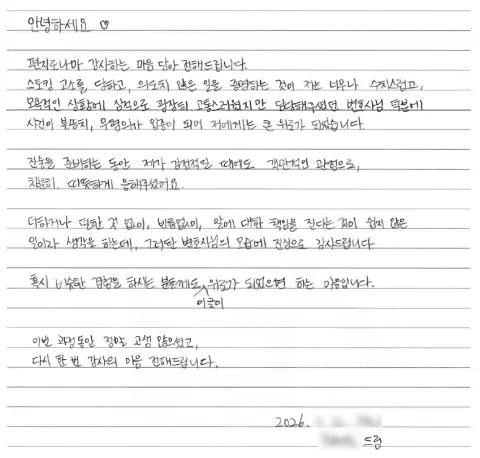 안녕하세요 ♡
편지로나마 감사하는 마음 담아 전해드립니다.
스토킹 고소를 당하고, 의도치 않은 일을 증명하는 것이 저는 너무나 수치스럽고,
모욕적인 상황에 심적으로 굉장히 고통스러웠지만 담당해주셨던 변호사님 덕분에
사건이 불송치, 무혐의가 입증이 되어 저에게는 큰 위로가 되었습니다.
진술을 준비하는 동안 제가 감정적일 때에도 객관적인 관점으로,
차분히, 따뜻하게 응해주셨어요.
더하거나 덜한 것 없이, 빈틈없이, 말에 대한 책임을 진다는 것이 쉽지 않은
일이라 생각을 하는데, 그러한 변호사님의 모습에 진심으로 감사드립니다
혹시 비슷한 경험을 하시는 분들께도 위로가 되었으면 하는 마음입니다.
이곳이
이번 과정동안 정말 고생 많으셨고,
다시 한 번 감사의 마음 전해드립니다.
2026.
드림